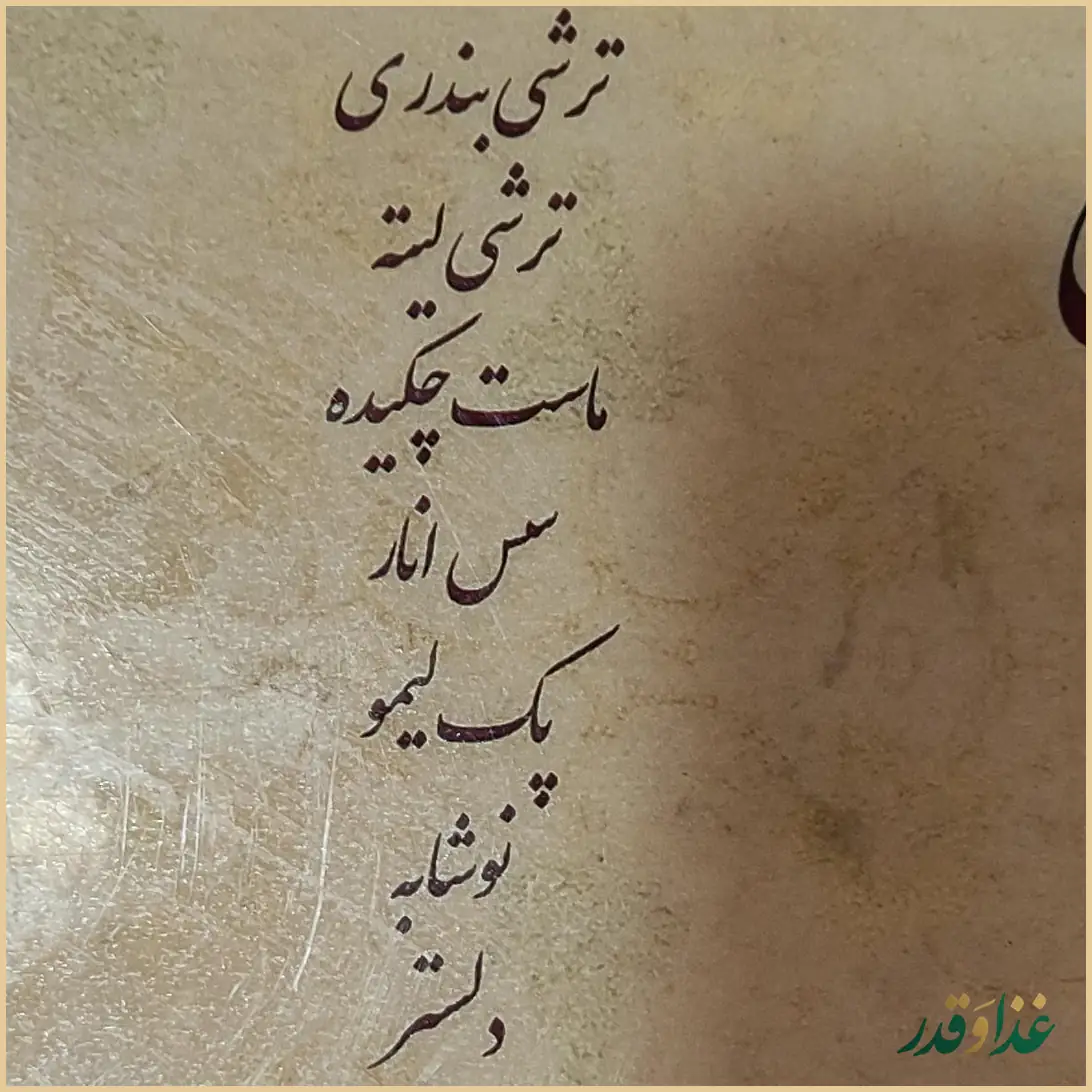 ترشی بندری
ترشی لیته
ماست چکیده
سس انار
پک لیمو
نوشابه
دلستر
غذا وَ قدر